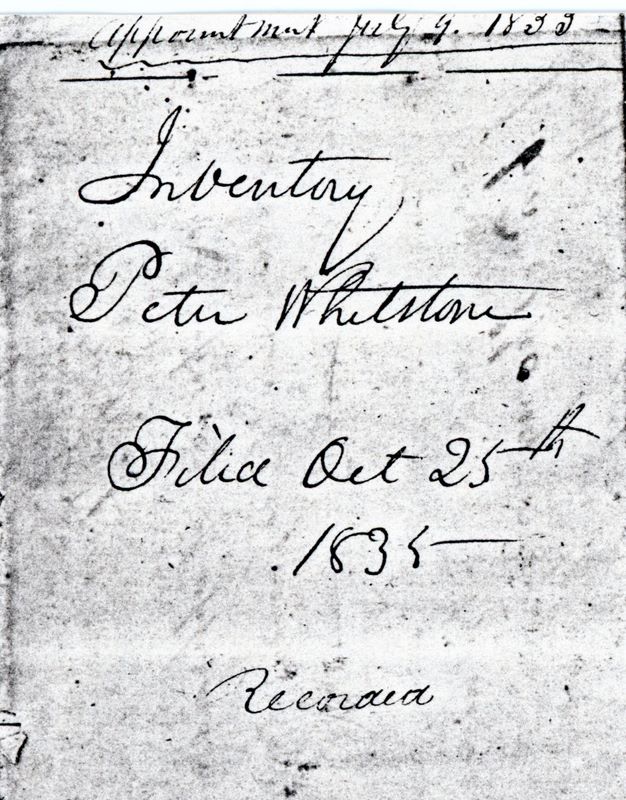 Appointment July 9. 1833
Inventory
Peter Whetstone
Filed Oct 25th
1835
Recorded